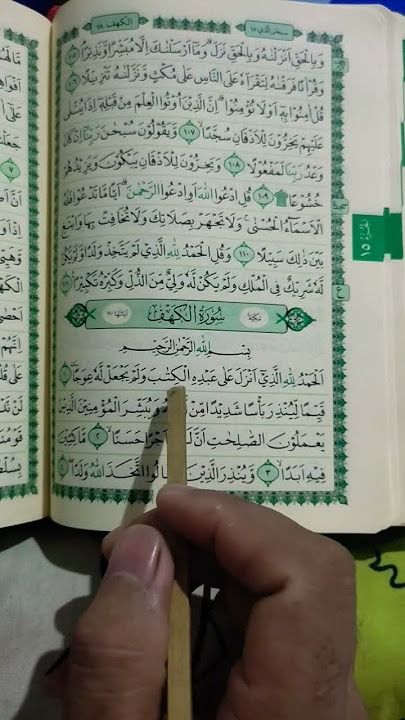 سبحن الذي ١٥
الكهف ١٨
وَبِالْحَقِّ اَنْزَلْنٰهُ وَبِالْحَقِّ نَزَلَ وَمَآ اَرْسَلْنٰكَ اِلَّا مُبَشِّرًا وَّنَذِيْرًا ۝١٠٥
وَقُرْاٰنًا فَرَقْنٰهُ لِتَقْرَاَهٗ عَلَى النَّاسِ عَلٰى مُكْثٍ وَّنَزَّلْنٰهُ تَنْزِيْلًا ۝١٠٦
قُلْ اٰمِنُوْا بِهٖٓ اَوْ لَا تُؤْمِنُوْا اِنَّ الَّذِيْنَ اُوْتُوا الْعِلْمَ مِنْ قَبْلِهٖٓ اِذَا يُتْلٰى
عَلَيْهِمْ يَخِرُّوْنَ لِلْاَذْقَانِ سُجَّدًا ۝١٠٧ وَّيَقُوْلُوْنَ سُبْحٰنَ رَبِّنَآ اِنْ كَانَ
وَعْدُ رَبِّنَا لَمَفْعُوْلًا ۝١٠٨ وَيَخِرُّوْنَ لِلْاَذْقَانِ يَبْكُوْنَ وَيَزِيْدُهُمْ
خُشُوْعًا ۩ ۝١٠٩ قُلِ ادْعُوا اللّٰهَ اَوِ ادْعُوا الرَّحْمٰنَ اَيًّا مَّا تَدْعُوْا فَلَهُ
الْاَسْمَاۤءُ الْحُسْنٰى وَلَا تَجْهَرْ بِصَلَاتِكَ وَلَا تُخَافِتْ بِهَا وَابْتَغِ
بَيْنَ ذٰلِكَ سَبِيْلًا ۝١١٠ وَقُلِ الْحَمْدُ لِلّٰهِ الَّذِيْ لَمْ يَتَّخِذْ وَلَدًا وَّلَمْ يَكُنْ
لَّهٗ شَرِيْكٌ فِى الْمُلْكِ وَلَمْ يَكُنْ لَّهٗ وَلِيٌّ مِّنَ الذُّلِّ وَكَبِّرْهُ تَكْبِيْرًا ۝١١١
سُوْرَةُ الْكَهْفِ
بِسْمِ اللّٰهِ الرَّحْمٰنِ الرَّحِيْمِ
اَلْحَمْدُ لِلّٰهِ الَّذِيْٓ اَنْزَلَ عَلٰى عَبْدِهِ الْكِتٰبَ وَلَمْ يَجْعَلْ لَّهٗ عِوَجًا ۝١
قَيِّمًا لِّيُنْذِرَ بَأْسًا شَدِيْدًا مِّنْ وَيُبَشِّرَ الْمُؤْمِنِيْنَ الَّذِيْنَ
يَعْمَلُوْنَ الصّٰلِحٰتِ اَنَّ اَجْرًا حَسَنًا ۝٢ مَّاكِثِيْنَ
فِيْهِ اَبَدًا ۝٣ وَّيُنْذِرَ الَّذِيْنَ اتَّخَذَ اللّٰهُ وَلَدًا ۝٤
الجزء ١٥